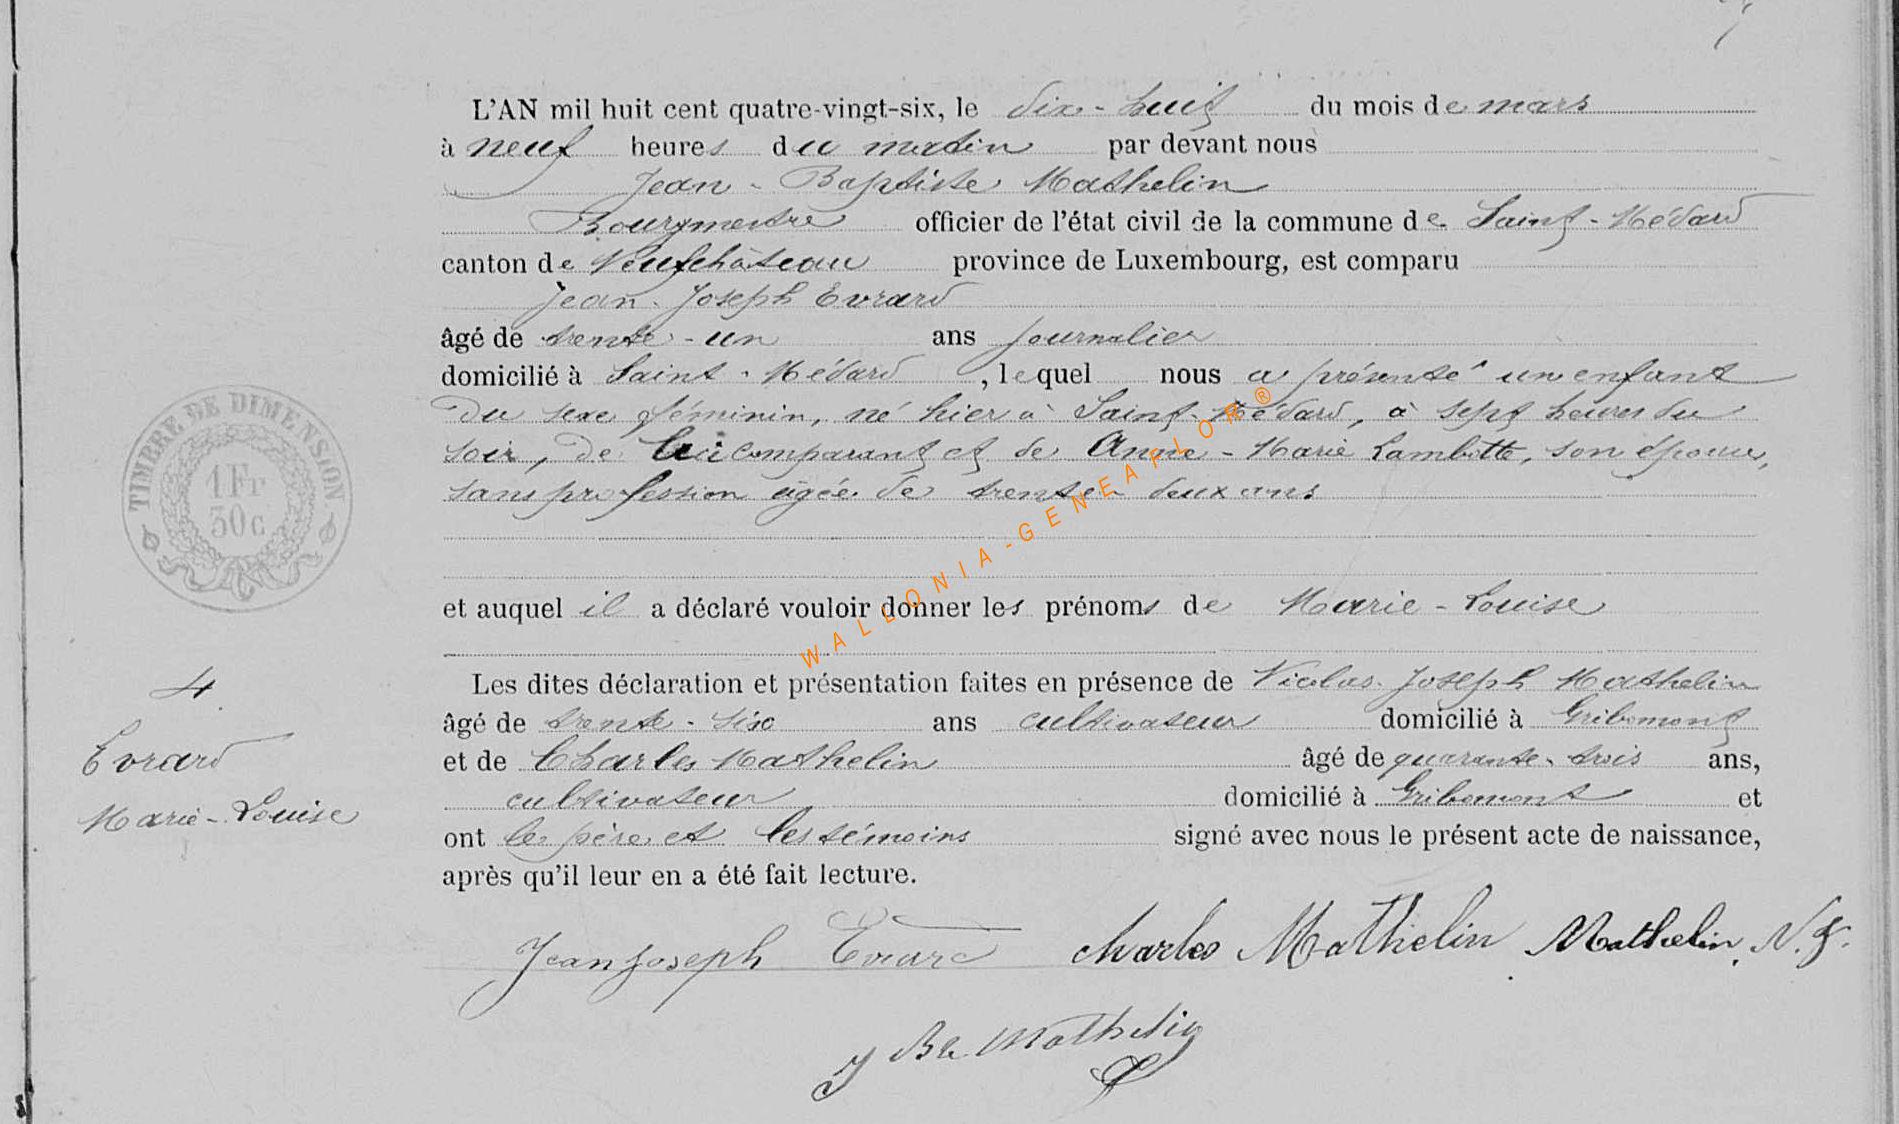 L'AN mil huit cent quatre-vingt-six, le dix-huit du mois de mars
à neuf heures du matin par devant nous
Jean-Baptiste Mathelin
Bourgmestre officier de l'état civil de la commune de Saint-Médard
canton de Neufchâteau province de Luxembourg, est comparu
Jean-Joseph Evrard
âgé de trente-un ans journalier
domicilié à Saint-Médard, lequel nous a présenté un enfant
du sexe féminin, né hier à Saint-Médard, à sept heures du
soir, de lui comparant et de Anne-Marie Lambotte, son épouse,
sans profession âgée de trente-deux ans
et auquel il a déclaré vouloir donner les prénoms de Marie-Louise
Les dites déclaration et présentation faites en présence de Nicolas-Joseph Mathelin
âgé de trente-six ans cultivateur domicilié à Gribomont
et de Charles Mathelin âgé de quarante-trois ans,
cultivateur domicilié à Gribomont et
ont le père et les témoins signé avec nous le présent acte de naissance,
après qu'il leur en a été fait lecture.
Jean Joseph Evrard Charles Mathelin Mathelin, N. J.
J Bte Mathelin
TIMBRE DE DIMENSION
1 Fr
50 c
4
Evrard
Marie-Louise
WALLONIA-GENEAFLOR®